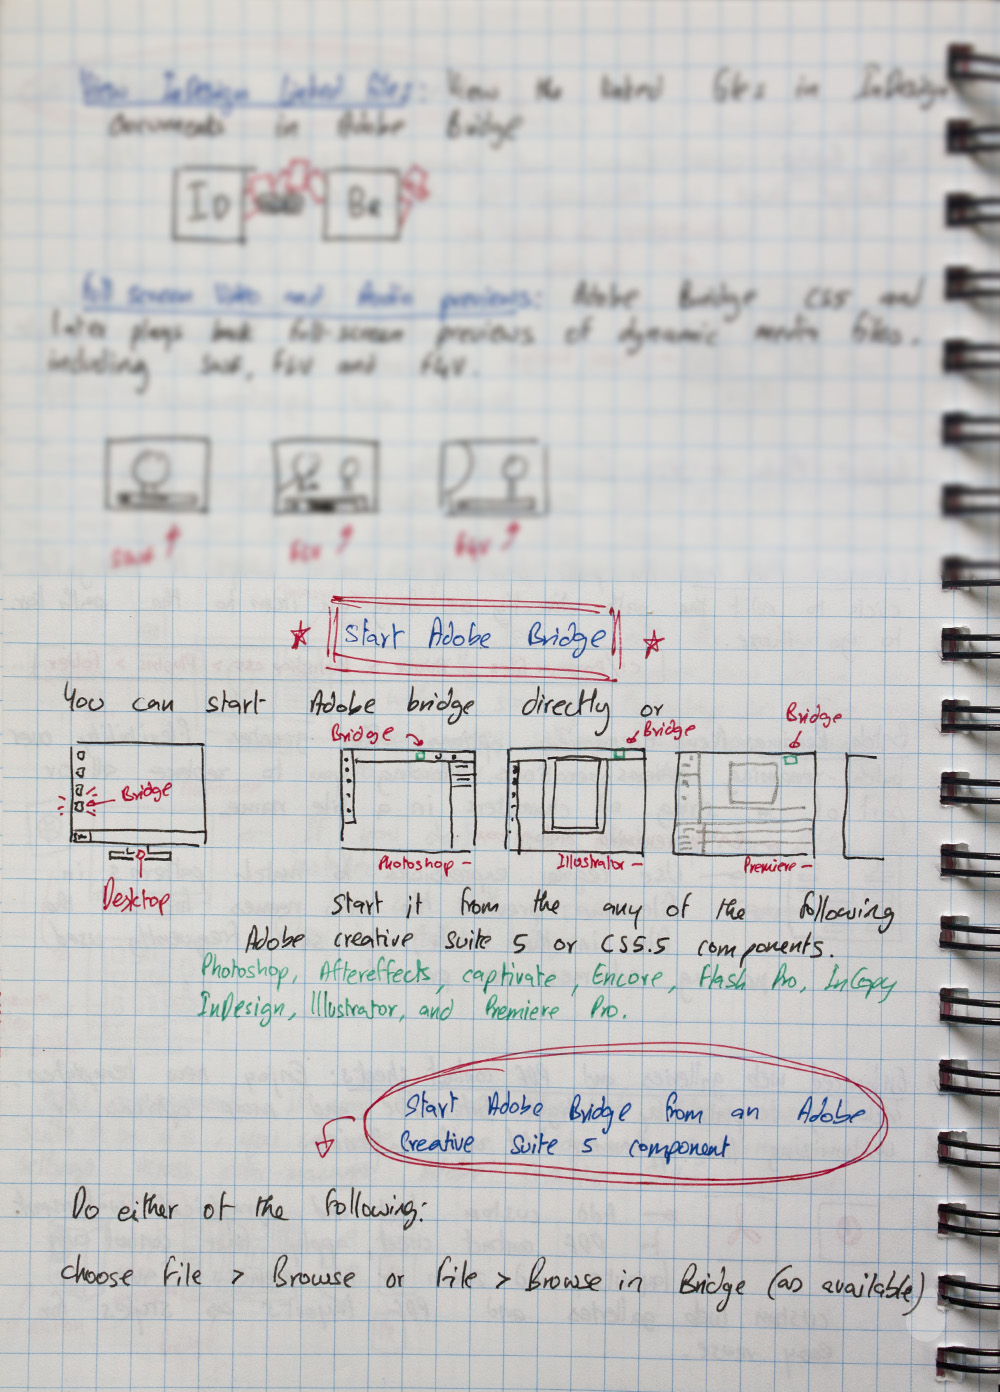 View InDesign Linked files: View the linked files in InDesign
Documents in Adobe Bridge
ID
Br
Full screen Video and Audio previews: Adobe Bridge CS5 and
later plays back full-screen previews of dynamic media files.
including swf, FLV and F4V.
swf
FLV
F4V
Start Adobe Bridge
You can start Adobe bridge directly or
Bridge
Bridge
Bridge
Bridge
Photoshop
Illustrator
Premiere
Desktop
start it from the any of the following
Adobe creative suite 5 or CS5.5 components.
Photoshop, Aftereffects, captivate, Encore, Flash Pro, InCopy
InDesign, Illustrator, and Premiere Pro.
Start Adobe Bridge from an Adobe
Creative Suite 5 component
Do either of the following:
choose file > Browse or file > Browse in Bridge (as available)